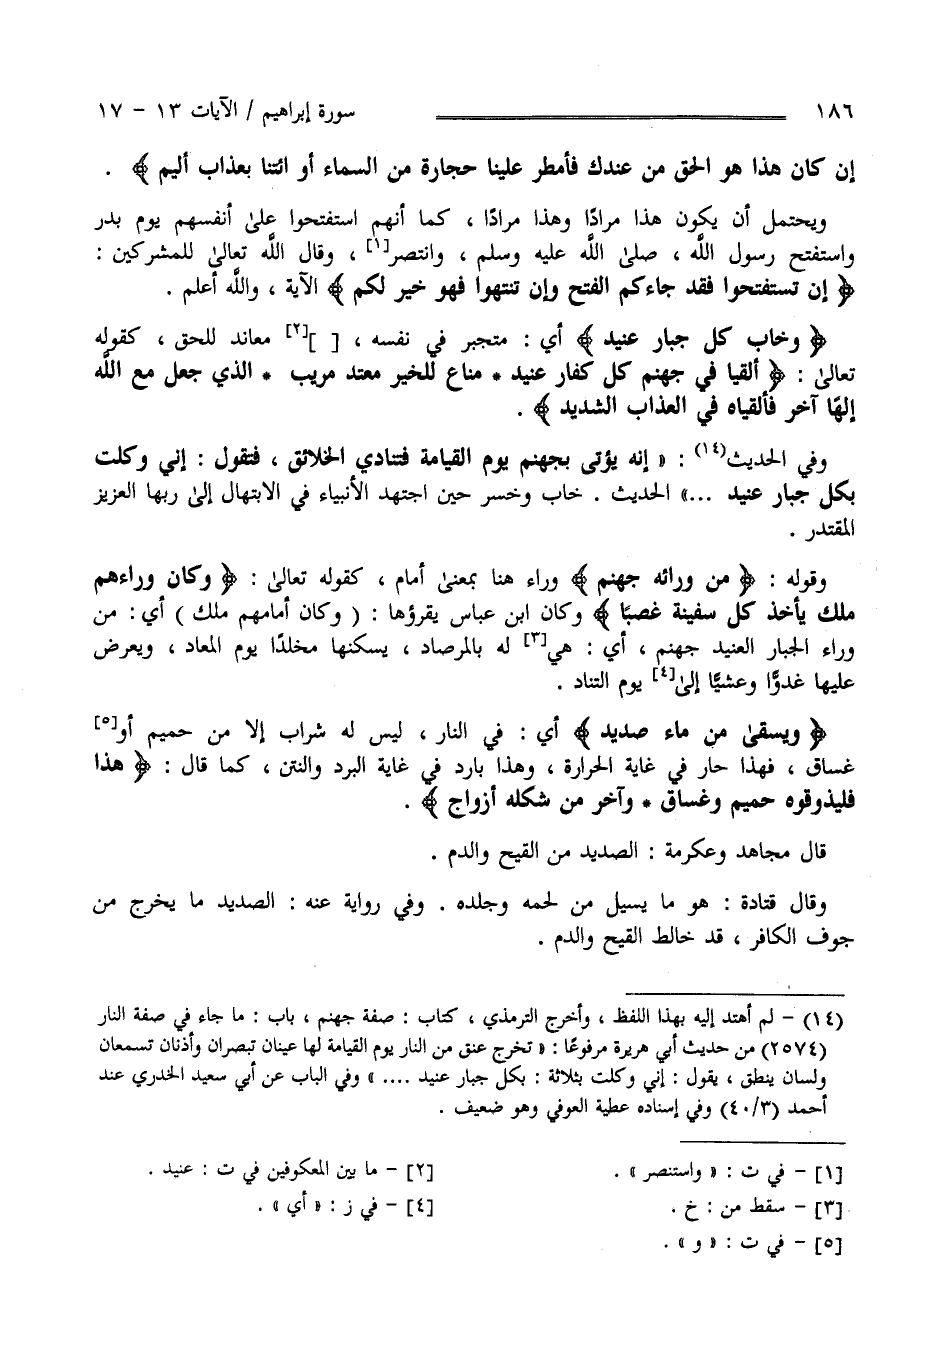 ١٨٦ سورة إبراهيم / الآيات ١٣ - ١٧
إن كان هذا هو الحق من عندك فأمطر علينا حجارة من السماء أو ائتنا بعذاب أليم ﴾ .
ويحتمل أن يكون هذا مرادًا وهذا مرادًا ، كما أنهم استفتحوا على أنفسهم يوم بدر
واستفتح رسول اللَّه ، صلى اللَّه عليه وسلم ، وانتصر[١] ، وقال اللَّه تعالى للمشركين :
﴿ إن تستفتحوا فقد جاءكم الفتح وإن تنتهوا فهو خير لكم ﴾ الآية ، واللَّه أعلم .
﴿ وخاب كل جبار عنيد ﴾ أي : متجبر في نفسه ، [ ][٢] معاند للحق ، كقوله
تعالى : ﴿ ألقيا في جهنم كل كفار عنيد * مناع للخير معتد مريب * الذي جعل مع اللَّه
إلهًا آخر فألقياه في العذاب الشديد ﴾ .
وفي الحديث(١٤) : « إنه يؤتى بجهنم يوم القيامة فتنادي الخلائق ، فتقول : إني وكلت
بكل جبار عنيد ...» الحديث . خاب وخسر حين اجتهد الأنبياء في الابتهال إلى ربها العزيز
المقتدر .
وقوله : ﴿ من ورائه جهنم ﴾ وراء هنا بمعنى أمام ، كقوله تعالى : ﴿ وكان وراءهم
ملك يأخذ كل سفينة غصبًا ﴾ وكان ابن عباس يقرؤها : ( وكان أمامهم ملك ) أي : من
وراء الجبار العنيد جهنم ، أي : هي[٣] له بالمرصاد ، يسكنها مخلدًا يوم المعاد ، ويعرض
عليها غدوًّا وعشيًّا إلى[٤] يوم التناد .
﴿ ويسقى من ماء صديد ﴾ أي : في النار ، ليس له شراب إلا من حميم أو[٥]
غساق ، فهذا حار في غاية الحرارة ، وهذا بارد في غاية البرد والنتن ، كما قال : ﴿ هذا
فليذوقوه حميم وغساق * وآخر من شكله أزواج ﴾ .
قال مجاهد وعكرمة : الصديد من القيح والدم .
وقال قتادة : هو ما يسيل من لحمه وجلده . وفي رواية عنه : الصديد ما يخرج من
جوف الكافر ، قد خالط القيح والدم .
(١٤) - لم أهتد إليه بهذا اللفظ ، وأخرج الترمذي ، كتاب : صفة جهنم ، باب : ما جاء في صفة النار
(٢٥٧٤) من حديث أبي هريرة مرفوعًا : « تخرج عنق من النار يوم القيامة لها عينان تبصران وأذنان تسمعان
ولسان ينطق ، يقول : إني وكلت بثلاثة : بكل جبار عنيد .... » وفي الباب عن أبي سعيد الخدري عند
أحمد (٤٠/٣) وفي إسناده عطية العوفي وهو ضعيف .
[١] - في ت : « واستنصر » . [٢] - ما بين المعكوفين في ت : عنيد .
[٣] - سقط من : خ . [٤] - في ز : « أي » .
[٥] - في ت : « و » .